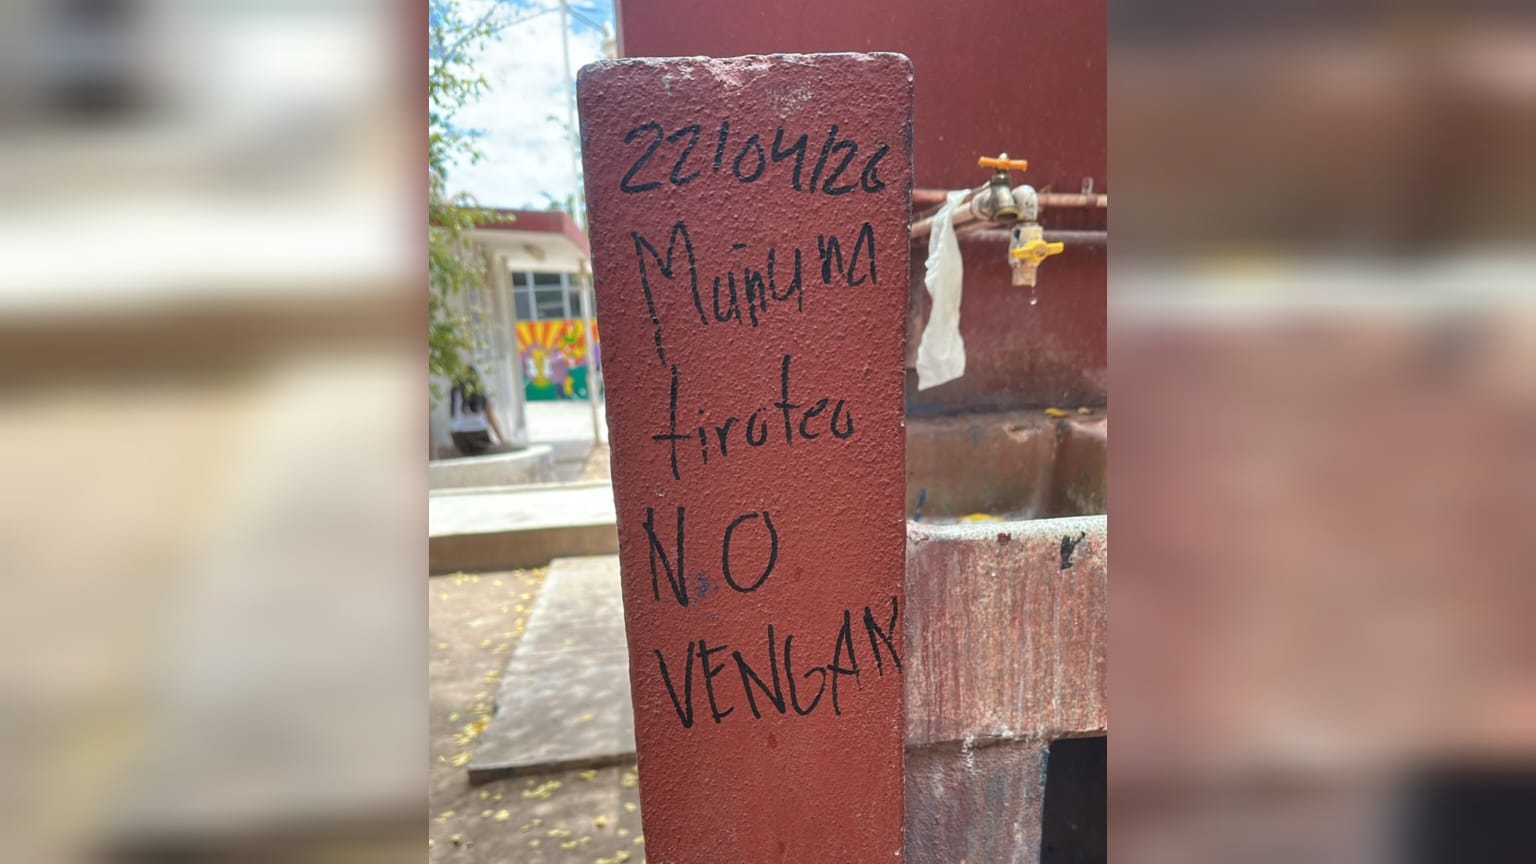 22/04/26
Mañana
tiroteo
NO
VENGAN